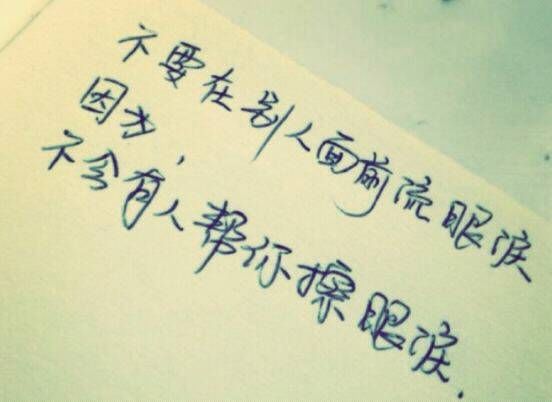 不要在别人面前流眼泪
因为，
不会有人帮你擦眼泪.